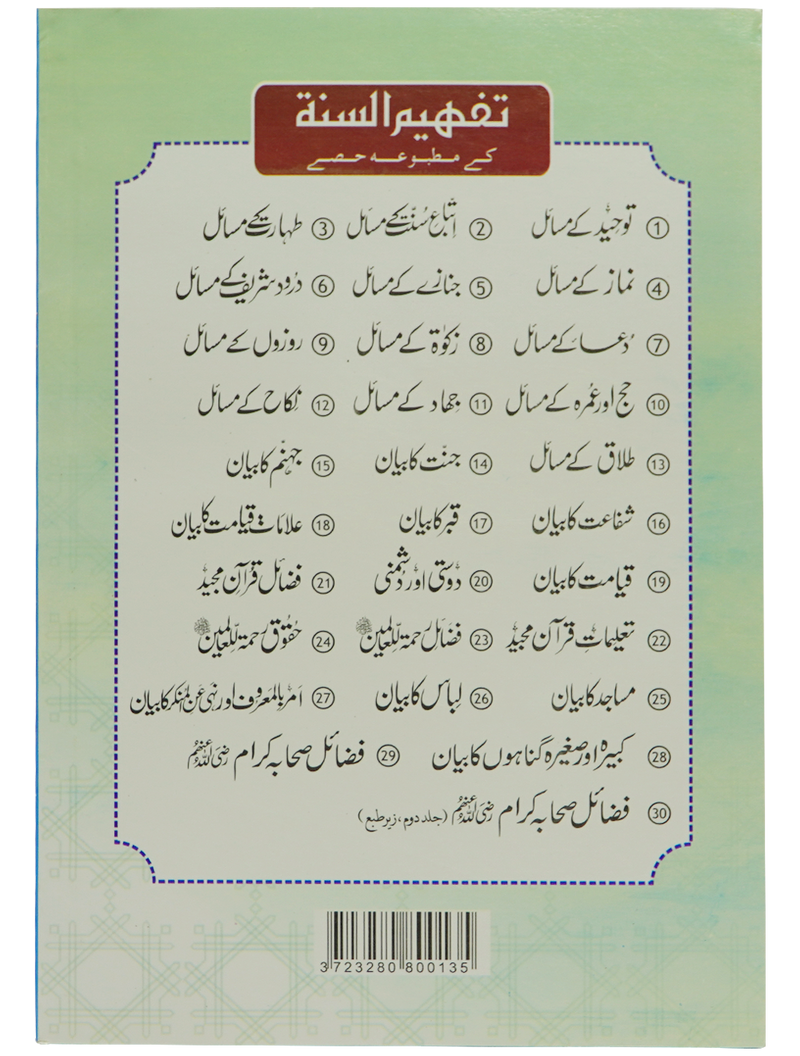 تفهیم السنة
کے مطبوعہ حصے
① توحید کے مسائل ② اتباع سنت کے مسائل ③ طہارت کے مسائل
④ نماز کے مسائل ⑤ جنازے کے مسائل ⑥ درود شریف کے مسائل
⑦ دعا کے مسائل ⑧ زکوٰۃ کے مسائل ⑨ روزوں کے مسائل
⑩ حج اور عمرہ کے مسائل ⑪ جہاد کے مسائل ⑫ نکاح کے مسائل
⑬ طلاق کے مسائل ⑭ جنت کا بیان ⑮ جہنم کا بیان
⑯ شفاعت کا بیان ⑰ قبر کا بیان ⑱ علامات قیامت کا بیان
⑲ قیامت کا بیان ⑳ دوستی اور دشمنی ㉑ فضائل قرآن مجید
㉒ تعلیمات قرآن مجید ㉓ فضائل رحمۃ للعالمین ﷺ ㉔ حقوق رحمۃ للعالمین ﷺ
㉕ مساجد کا بیان ㉖ لباس کا بیان ㉗ امر بالمعروف اور نہی عن المنکر کا بیان
㉘ کبیرہ اور صغیرہ گناہوں کا بیان ㉙ فضائل صحابہ کرام رضی اللہ عنہم
㉚ فضائل صحابہ کرام رضی اللہ عنہم (جلد دوم، زیر طبع)
3723280 800135